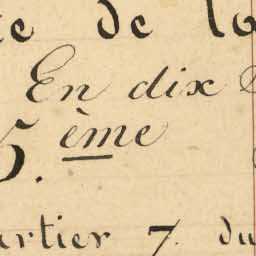 de la
En dix
5. ème
artier 7. du